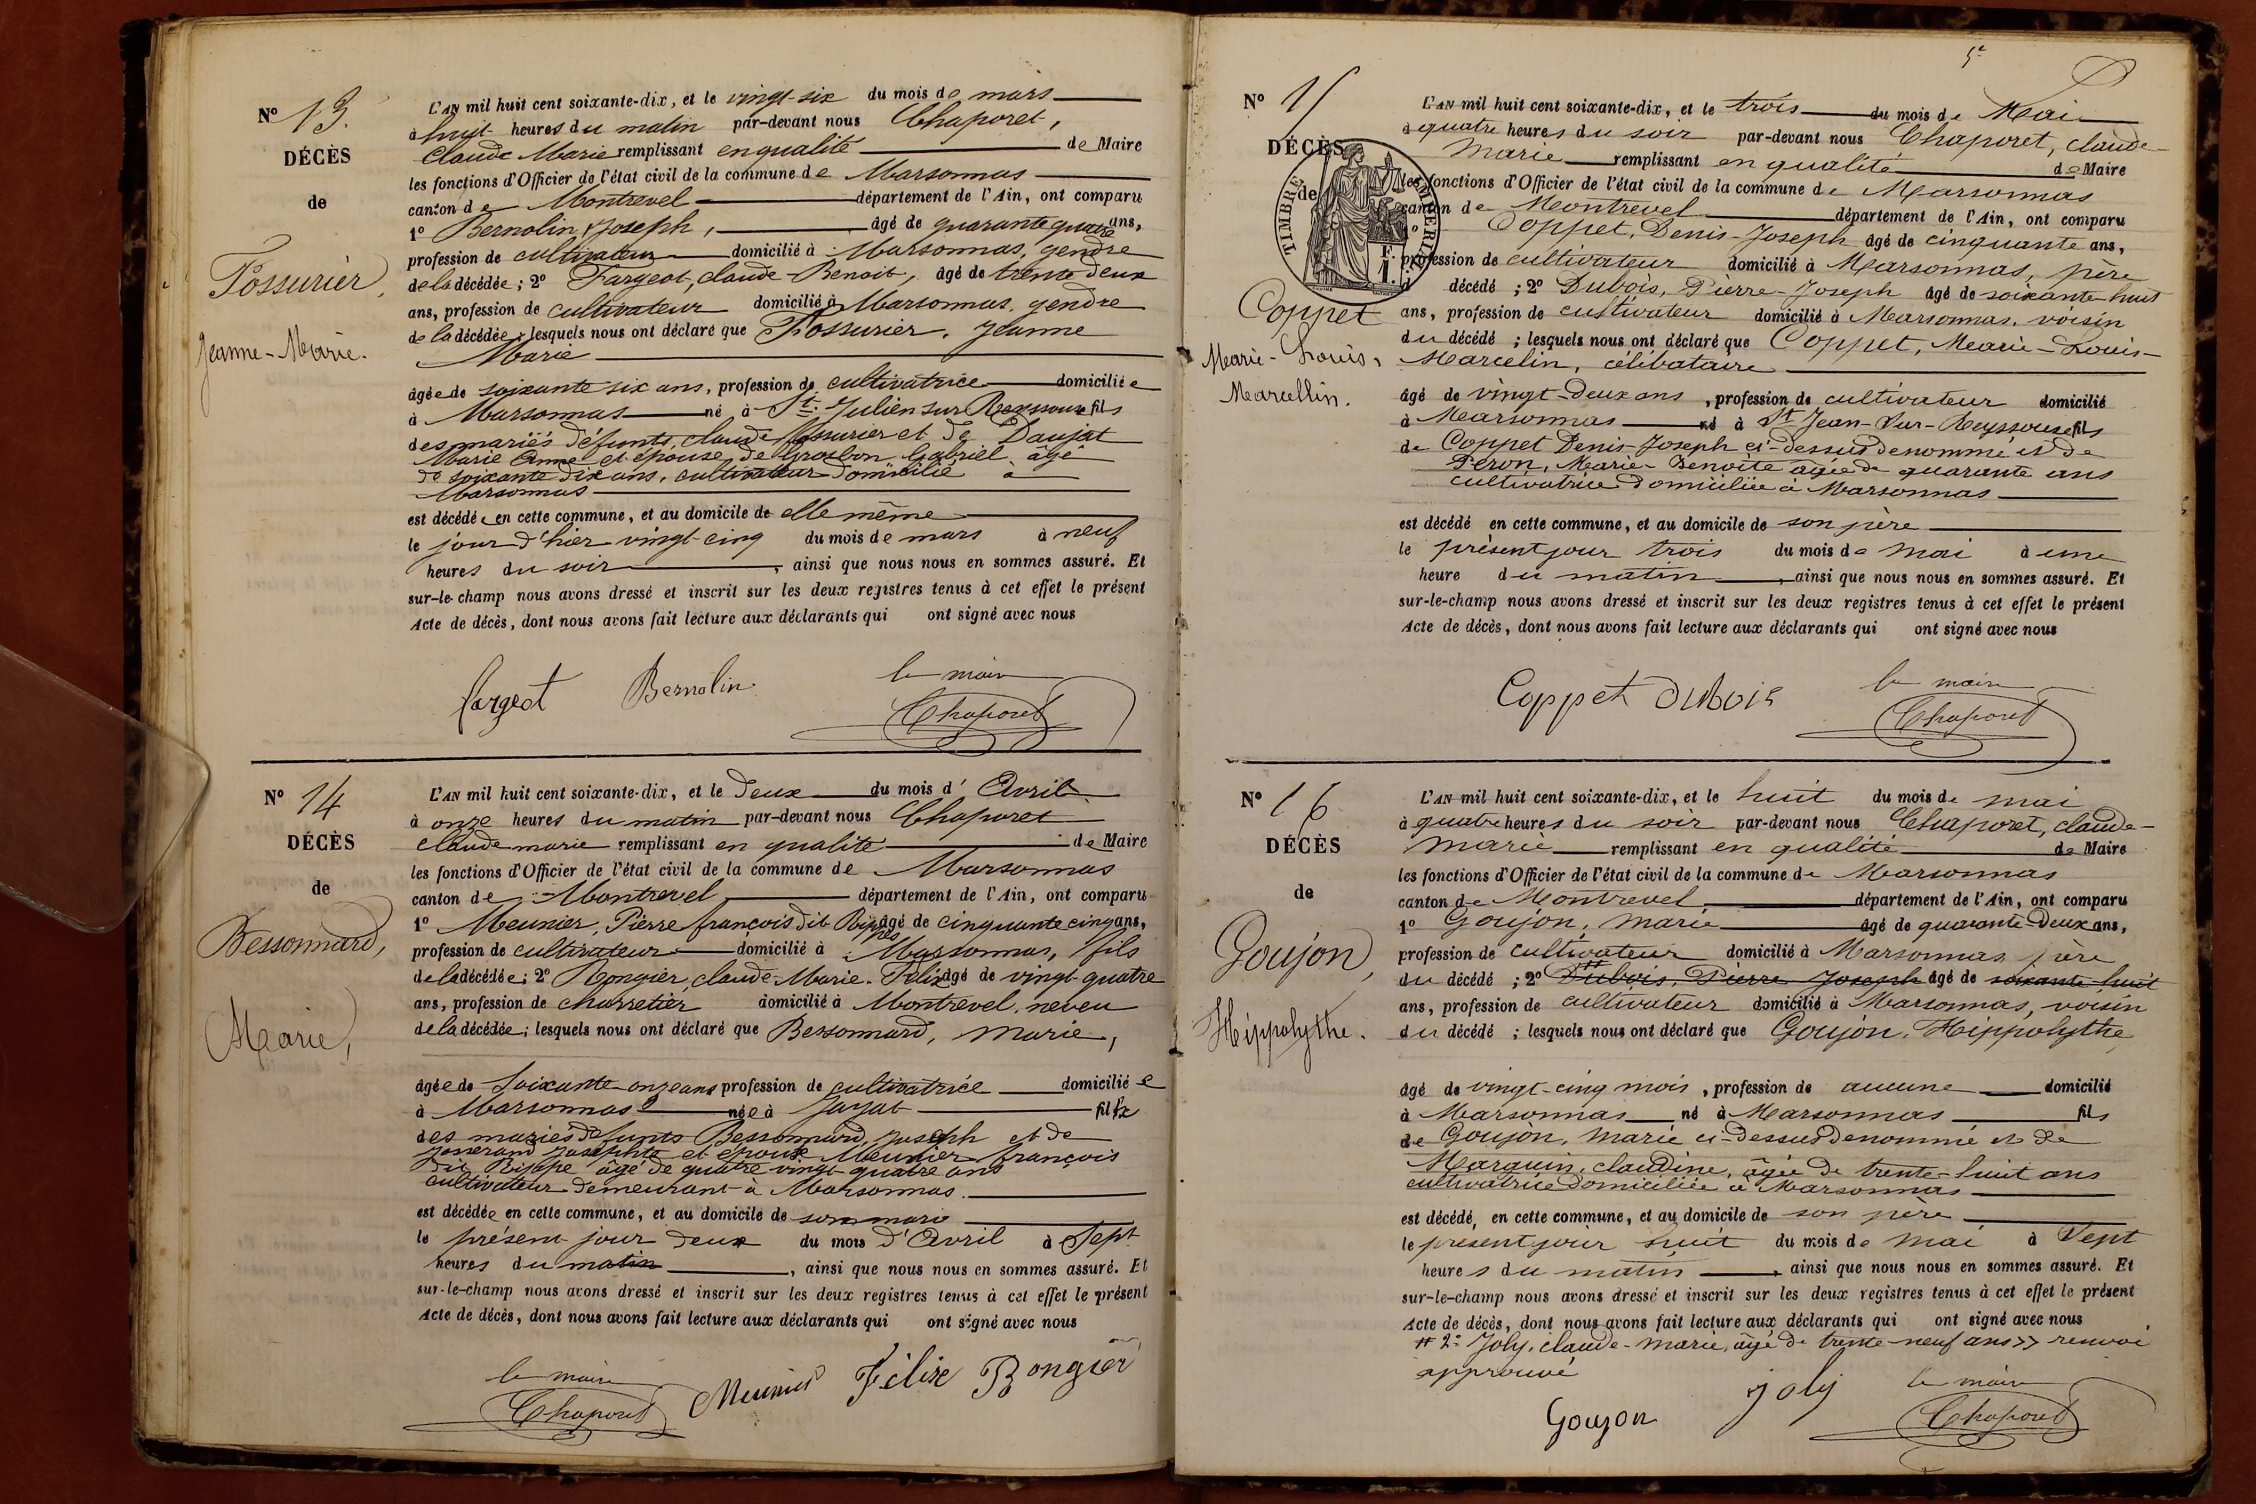 Nº 13.
DÉCÈS
de
Fossurier,
Jeanne-Marie.
L'AN mil huit cent soixante-dix, et le vingt-six du mois de mars
à huit heures du matin par-devant nous Chaporet,
Claude Marie remplissant en qualité de Maire
les fonctions d'Officier de l'état civil de la commune de Marsonnas
canton de Montrevel département de l'Ain, ont comparu
1º Bernolin, Joseph, âgé de quarante quatre ans,
profession de cultivateur domicilié à Marsonnas, gendre
de la décédée; 2º Fargeot, claude-Benoit, âgé de trente deux
ans, profession de cultivateur domicilié à Marsonnas, gendre
de la décédée; lesquels nous ont déclaré que Fossurier, Jeanne
Marie
âgée de soixante six ans, profession de cultivatrice domiciliée
à Marsonnas né à St. Julien sur Reyssouse fils
des mariés défunts, claude Fossurier et de Daujat
Marie Anne et épouse de Grosbon Gabriel âgé
de soixante dix ans, cultivateur domicilié à
Marsonnas
est décédée en cette commune, et au domicile de elle même
le jour d'hier vingt-cinq du mois de mars à neuf
heures du soir, ainsi que nous nous en sommes assuré. Et
sur-le-champ nous avons dressé et inscrit sur les deux registres tenus à cet effet le présent
Acte de décès, dont nous avons fait lecture aux déclarants qui ont signé avec nous
fargeot Bernolin le maire
Chaporet
Nº 14
DÉCÈS
de
Bessonnard,
Marie,
L'AN mil huit cent soixante-dix, et le deux du mois d'Avril
à onze heures du matin par-devant nous Chaporet
Claude marie remplissant en qualité de Maire
les fonctions d'Officier de l'état civil de la commune de Marsonnas
canton de Montrevel département de l'Ain, ont comparu
1º Meunier, Pierre françois dit Rippe âgé de cinquante cinq ans,
profession de cultivateur domicilié à Marsonnas, fils
de la décédée; 2º Rongier, claude-Marie-Félix âgé de vingt-quatre
ans, profession de charretier domicilié à Montrevel, neveu
de la décédée; lesquels nous ont déclaré que Bessonnard, Marie,
âgée de Soixante-onze ans profession de cultivatrice domiciliée
à Marsonnas née à Jayat fille
des mariés défunts Bessonnard, Joseph et de
Josserand Josephte et épouse Meunier françois
dit Rippe âgé de quatre-vingt-quatre ans
cultivateur demeurant à Marsonnas.
est décédée en cette commune, et au domicile de son mari
le présent jour deux du mois d'Avril à Sept
heures du matin, ainsi que nous nous en sommes assuré. Et
sur-le-champ nous avons dressé et inscrit sur les deux registres tenus à cet effet le présent
Acte de décès, dont nous avons fait lecture aux déclarants qui ont signé avec nous
le maire
Chaporet Meunier Félix Rongier
5e
Nº 15
DÉCÈS
de
TIMBRE
Coppet
Marie-Louis,
Marcellin.
L'AN mil huit cent soixante-dix, et le trois du mois de Mai
à quatre heures du soir par-devant nous Chaporet, claude-
Marie remplissant en qualité de Maire
les fonctions d'Officier de l'état civil de la commune de Marsonnas
canton de Montrevel département de l'Ain, ont comparu
1º Coppet, Denis-Joseph âgé de cinquante ans,
profession de cultivateur domicilié à Marsonnas, père
décédé; 2º Dubois, Pierre-Joseph âgé de soixante huit
ans, profession de cultivateur domicilié à Marsonnas, voisin
du décédé; lesquels nous ont déclaré que Coppet, Marie-Louis-
Marcelin, célibataire
âgé de vingt-deux ans, profession de cultivateur domicilié
à Marsonnas né à St Jean-Sur-Reyssouse fils
de Coppet Denis-Joseph ci-dessus denommé et de
Peron, Marie-Benoite âgée de quarante ans
cultivatrice domiciliée à Marsonnas
est décédé en cette commune, et au domicile de son père
le présent jour trois du mois de Mai à une
heure du matin, ainsi que nous nous en sommes assuré. Et
sur-le-champ nous avons dressé et inscrit sur les deux registres tenus à cet effet le présent
Acte de décès, dont nous avons fait lecture aux déclarants qui ont signé avec nous
Coppet Dubois le maire
Chaporet
Nº 16
DÉCÈS
de
Goujon,
Hippolythe.
L'AN mil huit cent soixante-dix, et le huit du mois de mai
à quatre heures du soir par-devant nous Chaporet, claude-
Marie remplissant en qualité de Maire
les fonctions d'Officier de l'état civil de la commune de Marsonnas
canton de Montrevel département de l'Ain, ont comparu
1º Goujon, Marie âgé de quarante-deux ans,
profession de cultivateur domicilié à Marsonnas, père
du décédé; 2º # Dubois, Pierre Joseph âgé de soixante huit
ans, profession de cultivateur domicilié à Marsonnas, voisin
du décédé; lesquels nous ont déclaré que Goujon, Hippolythe
âgé de vingt-cinq mois, profession de aucune domicilié
à Marsonnas né à Marsonnas fils
de Goujon, Marie ci-dessus denommé et de
Marguin, claudine, âgée de trente-huit ans
cultivatrice domiciliée à Marsonnas
est décédé, en cette commune, et au domicile de son père
le présent jour huit du mois de Mai à Sept
heures du matin, ainsi que nous nous en sommes assuré. Et
sur-le-champ nous avons dressé et inscrit sur les deux registres tenus à cet effet le présent
Acte de décès, dont nous avons fait lecture aux déclarants qui ont signé avec nous
# 2º Joly, claude-marie, âgé de trente-neuf ans >> renvoi
approuvé
Goujon Joly le maire
Chaporet